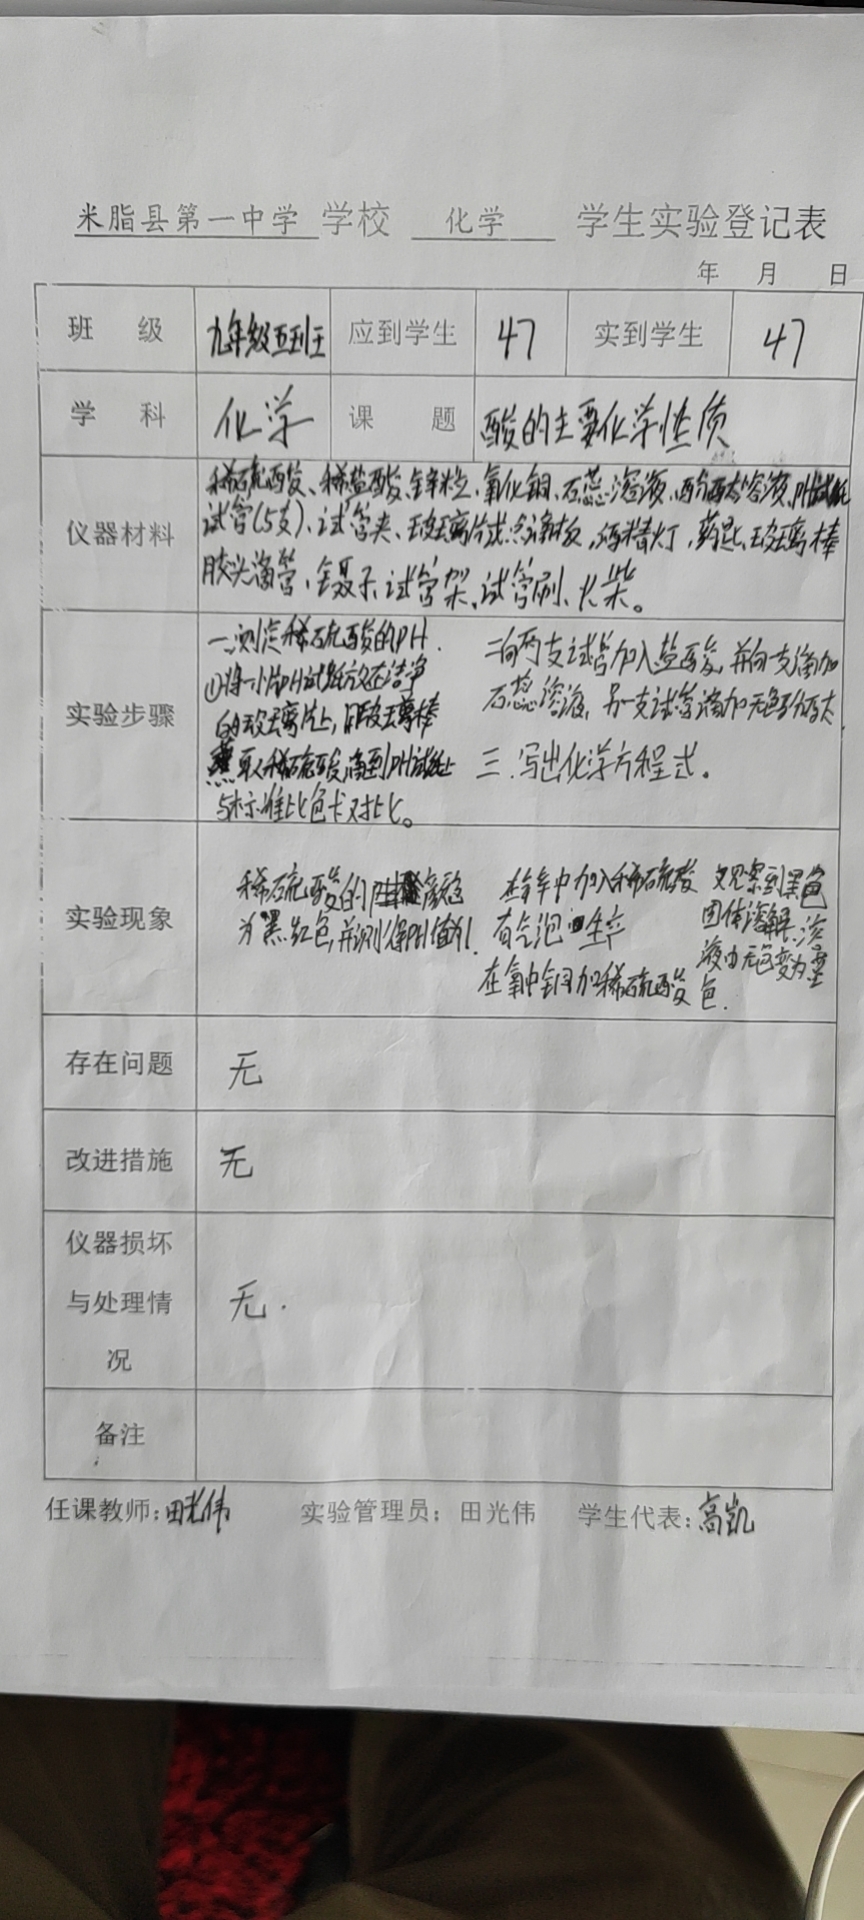 米脂县第一中学 学校 化学 学生实验登记表
年 月 日
班 级 九年级五班 应到学生 47 实到学生 47
学 科 化学 课 题 酸的主要化学性质
仪器材料
稀硫酸、稀盐酸、锌粒、氧化铜、石蕊溶液、酚酞溶液、PH试纸
试管(5支)、试管夹、玻璃片或点滴板、酒精灯、药匙、玻璃棒
胶头滴管、镊子、试管架、试管刷、火柴。
实验步骤
一、测定稀硫酸的PH.
①将一小片PH试纸放在洁净
的玻璃片上,用玻璃棒
取稀硫酸滴到PH试纸上
与标准比色卡对比。
二向两支试管加入盐酸,并向一支滴加
石蕊溶液,另一支试管滴加无色酚酞
三.写出化学方程式。
实验现象
稀硫酸的颜色
为黑红色,并测得PH值为1.
在锌中加入稀硫酸
有气泡产生
在氧中铜加稀硫酸
观察到黑色
固体溶解,溶
液由无色变为蓝
色.
存在问题 无
改进措施 无
仪器损坏
与处理情
况
无.
备注
任课教师:田光伟 实验管理员:田光伟 学生代表:高凯